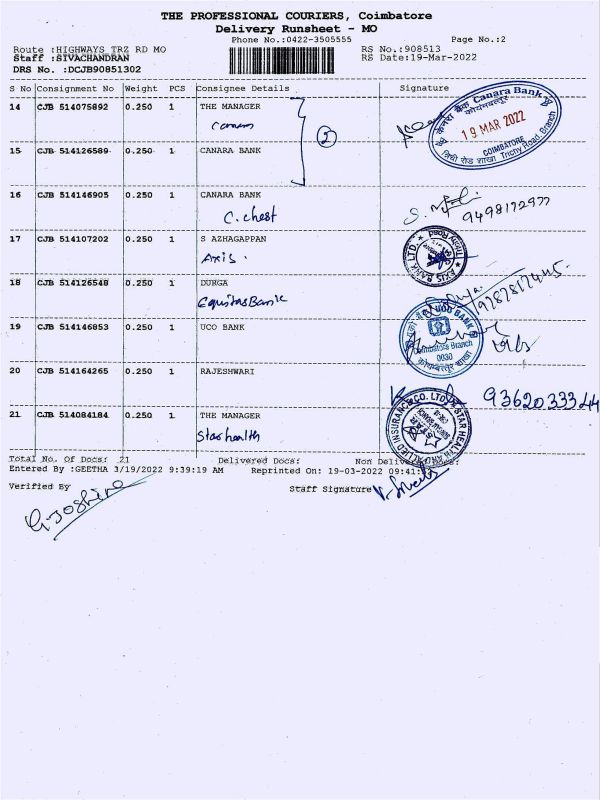 THE PROFESSIONAL COURIERS, Coimbatore
Delivery Runsheet - MO
Phone No.:0422-3505555 Page No.:2
Route :HIGHWAYS TRZ RD MO RS No.:908513
Staff :SIVACHANDRAN RS Date:19-Mar-2022
DRS No. :DCJB90851302
S No Consignment No Weight PCS Consignee Details Signature
14 CJB 514075892 0.250 1 THE MANAGER
Canara
2
केनरा बैंक Canara Bank
कोयम्बत्तूर
19 MAR 2022
COIMBATORE
Trichy Road, Branch
15 CJB 514126589 0.250 1 CANARA BANK
16 CJB 514146905 0.250 1 CANARA BANK
C. chest
9498172977
17 CJB 514107202 0.250 1 S AZHAGAPPAN
Axis.
AXIS BANK LTD.
18 CJB 514126548 0.250 1 DURGA
Equitas Bank
19 CJB 514146853 0.250 1 UCO BANK
UCO BANK
Coimbatore Branch
0030
20 CJB 514164265 0.250 1 RAJESHWARI
9362033344
21 CJB 514084184 0.250 1 THE MANAGER
Star health
STAR HEALTH AND ALLIED INSURANCE CO. LTD.
Total No. Of Docs: 21 Delivered Docs: Non Delivered Docs:
Entered By :GEETHA 3/19/2022 9:39:19 AM Reprinted On: 19-03-2022 09:41:
Verified By Staff Signature
G. Joshina